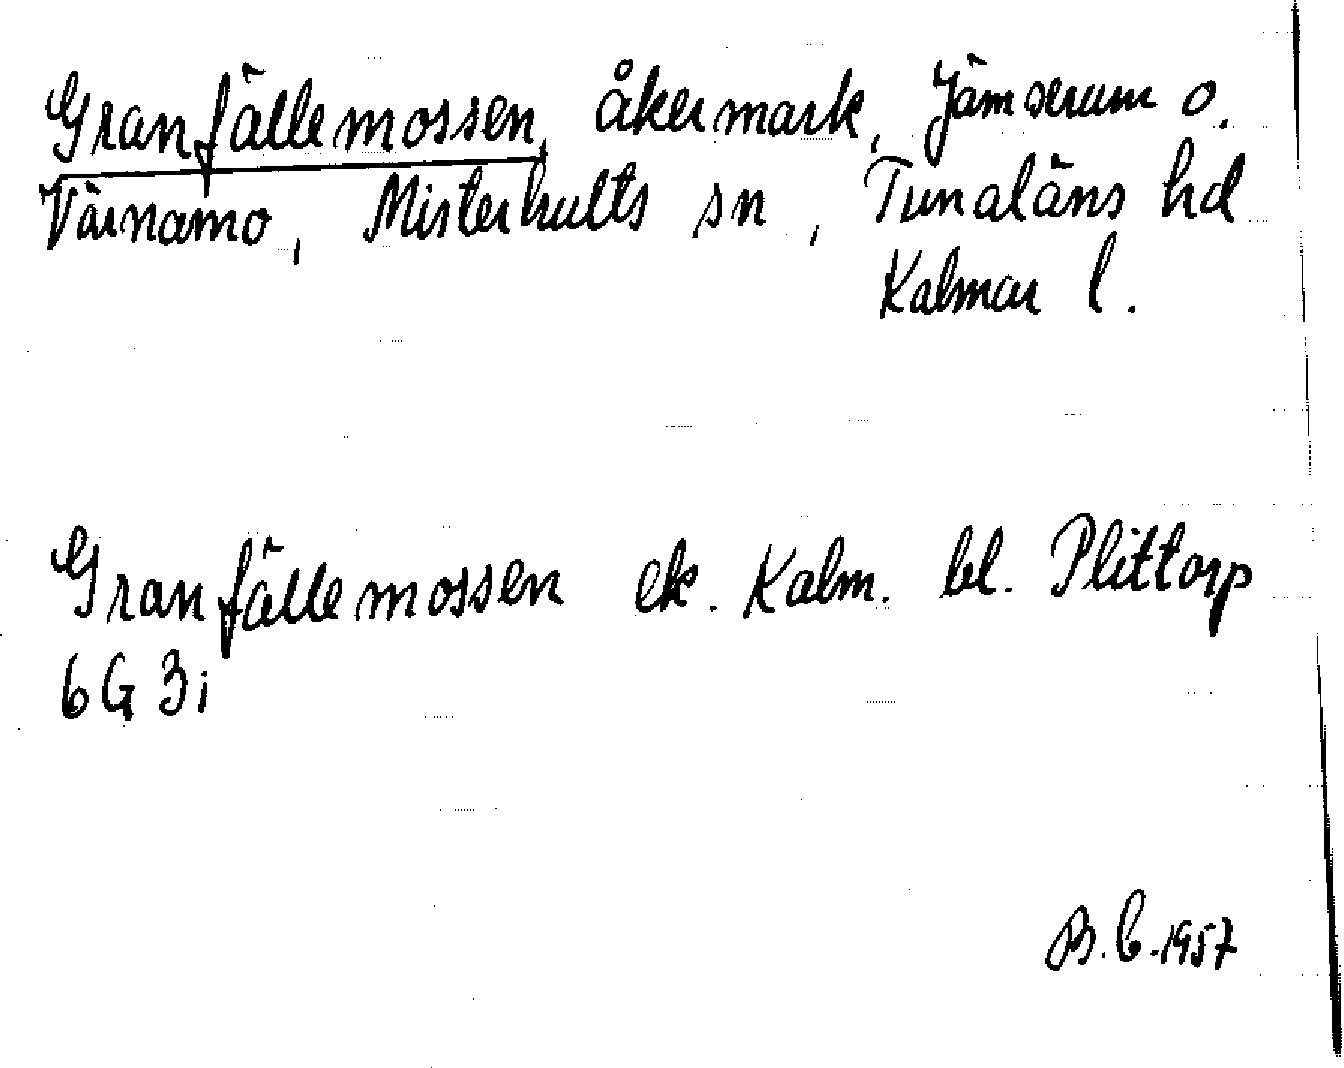 Granfällemossen, åkermark, Jämserum o.
Värnamo, Misterhults sn, Tunaläns hd
Kalmar l.
Granfällemossen ek. Kalm. bl. Plittorp
6G 3i
B.C. 1957